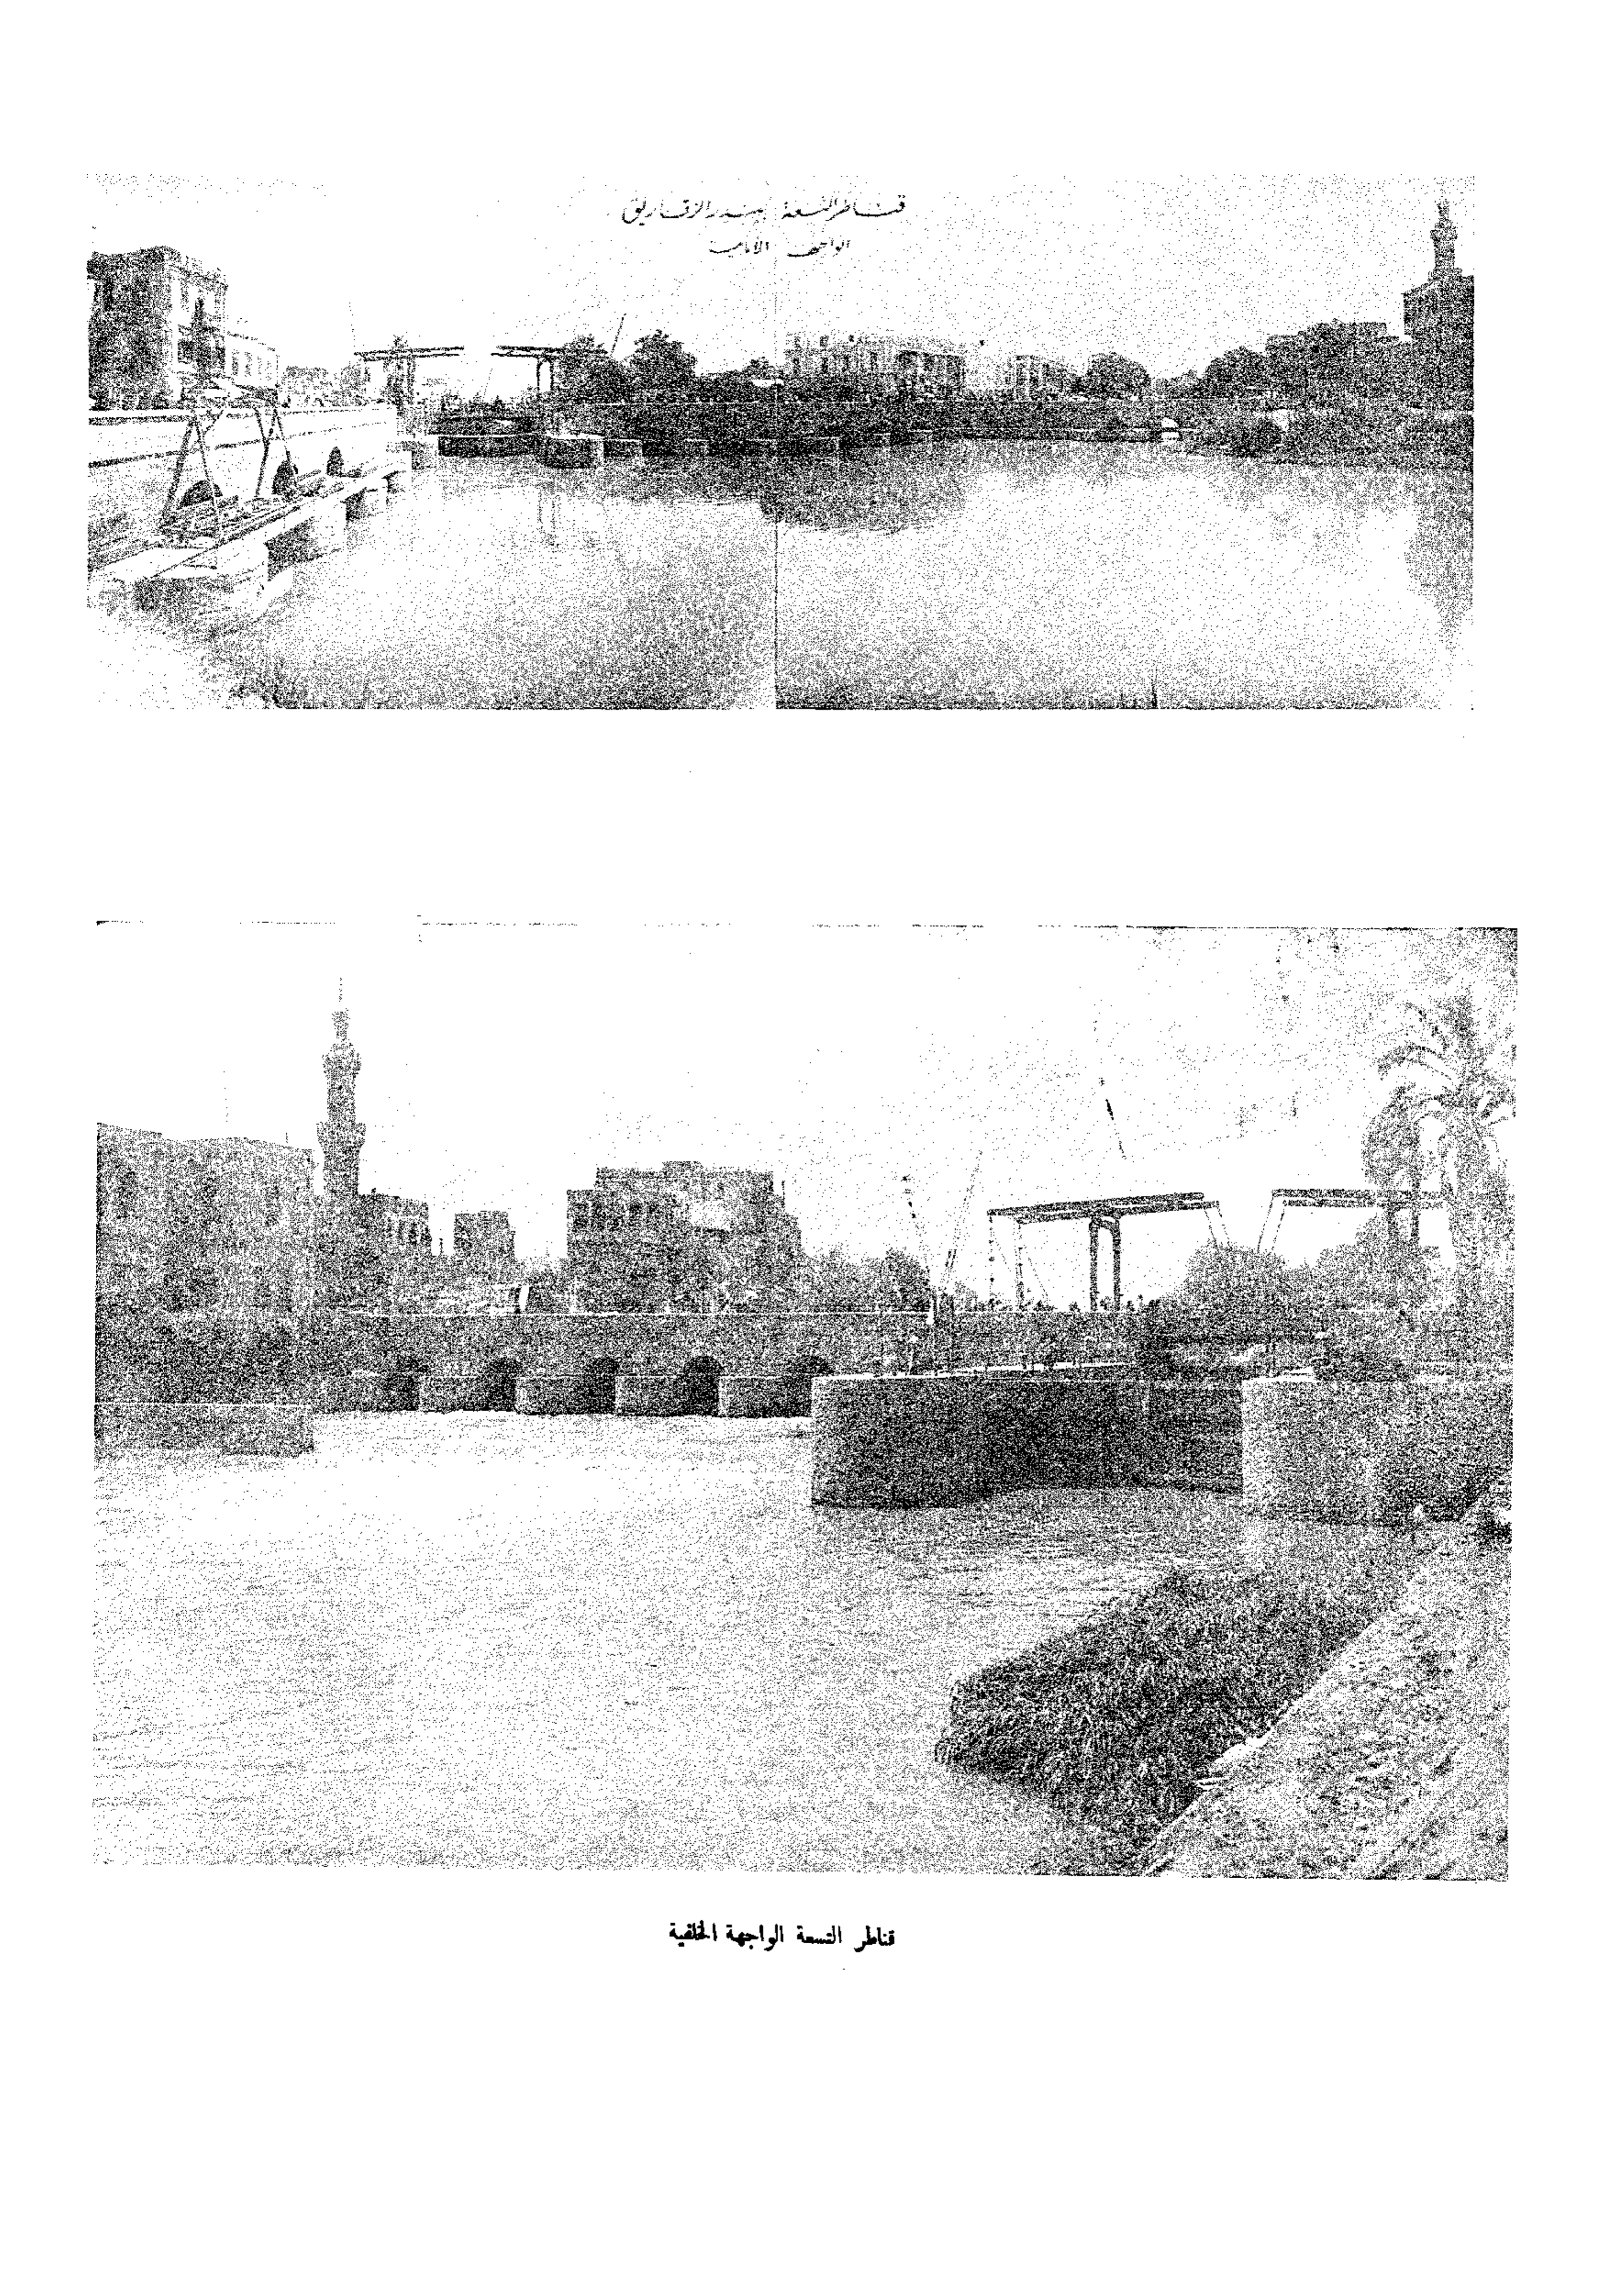 قناطر التسعة ببندر الزقازيق
الواجهة الأمامية
قناطر التسعة الواجهة الخلفية